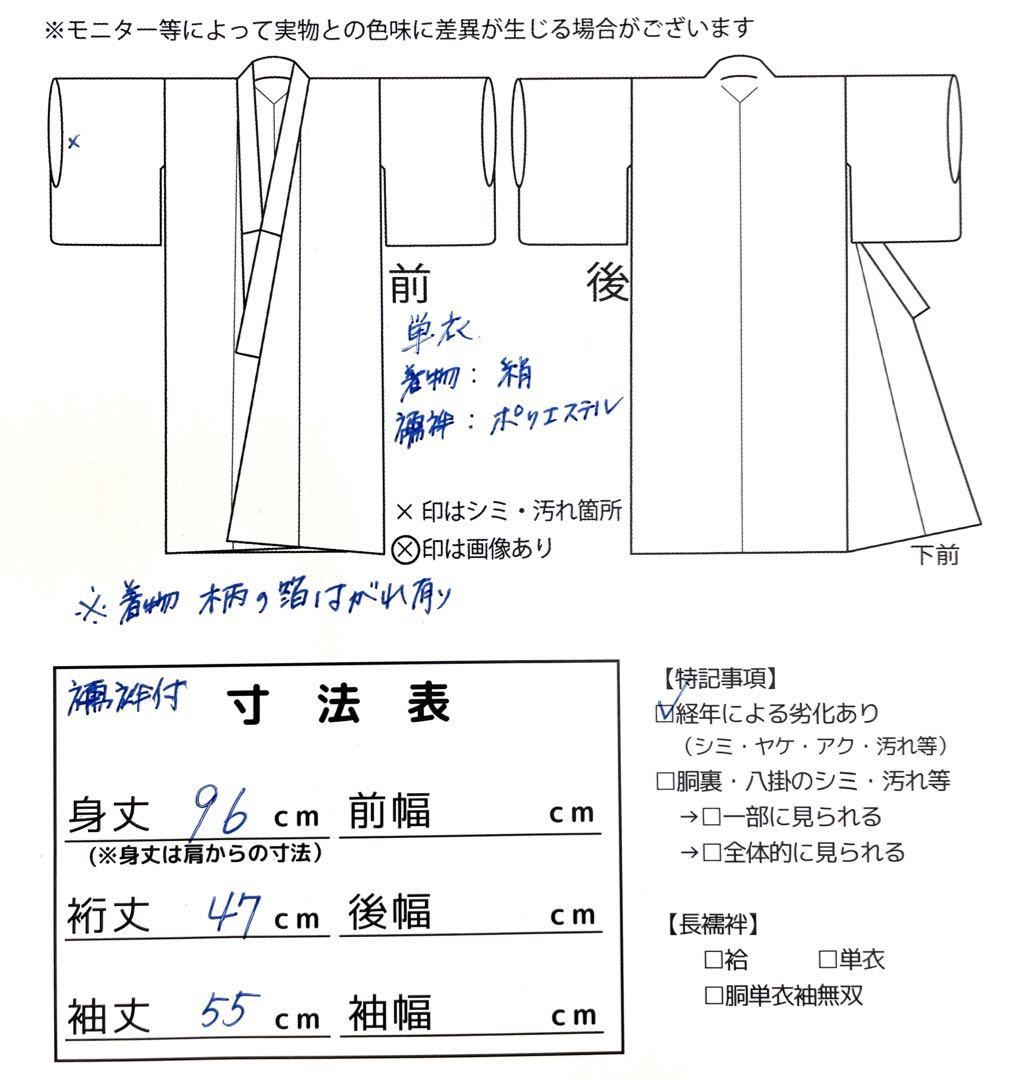 ※モニター等によって実物との色味に差異が生じる場合がございます
×
前
後
単衣
着物：絹
襦袢：ポリエステル
×印はシミ・汚れ箇所
Ⓧ印は画像あり
下前
※着物 柄の箔はがれ有り
襦袢付 寸法表
身丈 96 cm 前幅 cm
(※身丈は肩からの寸法)
裄丈 47 cm 後幅 cm
袖丈 55 cm 袖幅 cm
【特記事項】
☑経年による劣化あり
（シミ・ヤケ・アク・汚れ等）
□胴裏・八掛のシミ・汚れ等
→□一部に見られる
→□全体的に見られる
【長襦袢】
□袷 □単衣
□胴単衣袖無双